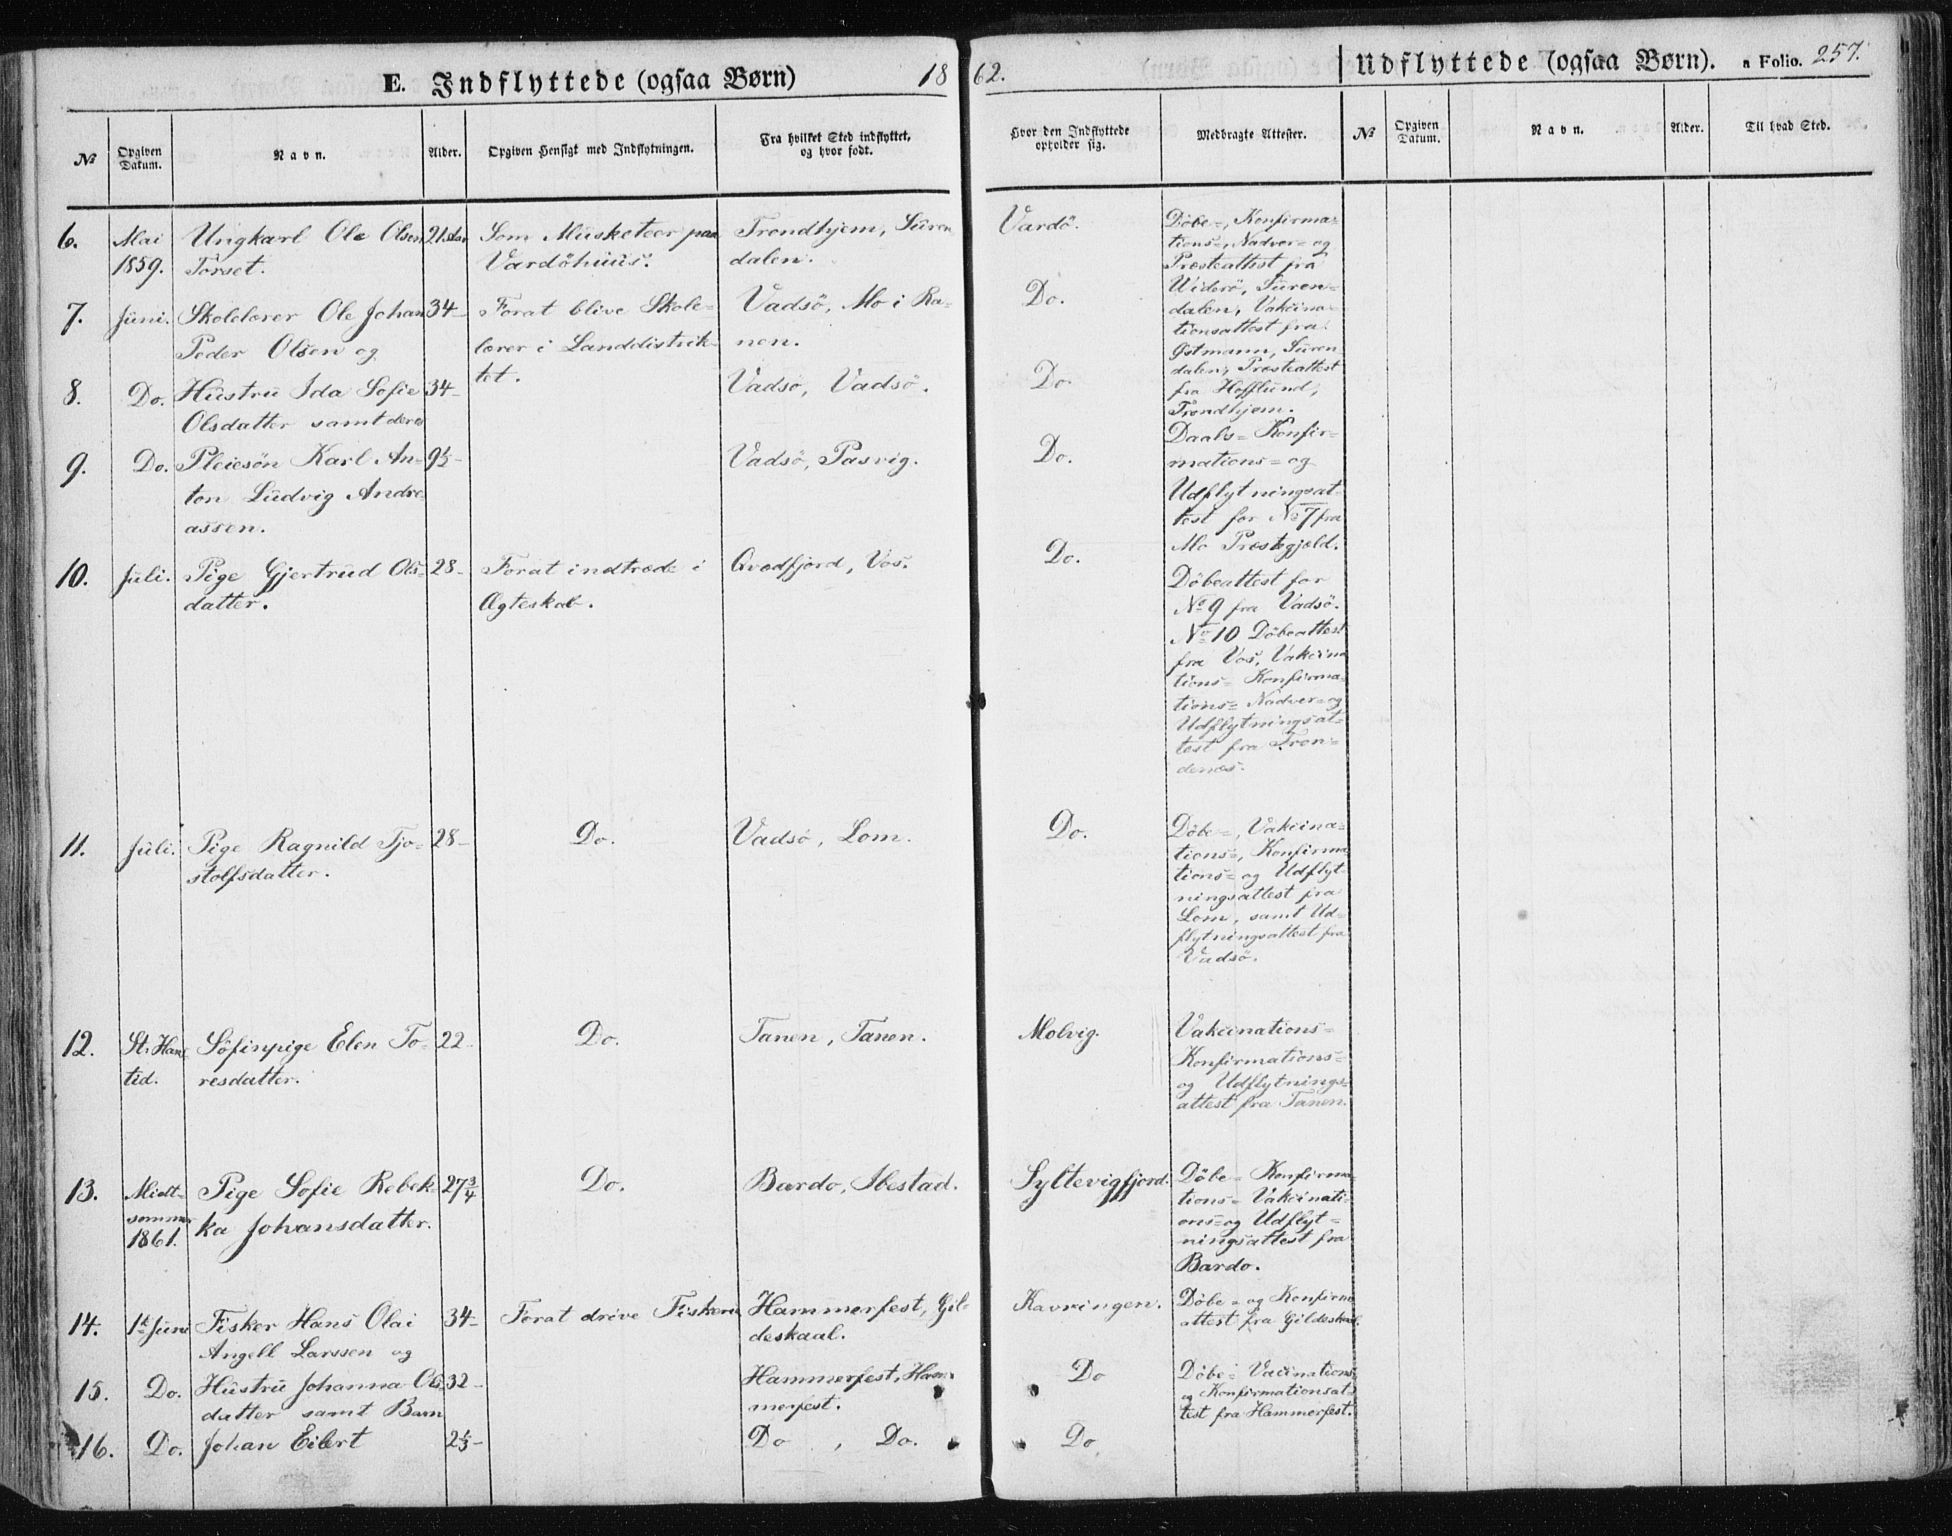 E. Indflyttede (ogsaa Børn) 1862. Udflyttede (ogsaa Børn). a Folio. 257.
No
Opgiven Datum.
Navn.
Alder.
Opgiven Hensigt med Indflytningen.
Fra hvilket Sted indflyttet, og hvor født.
Hvor den Indflyttede opholder sig.
Medbragte Attester.
No
Opgiven Datum.
Navn.
Alder.
Til hvad Sted.
6. Mai 1859.
Ungkarl Ole Olsen
Torset.
21 Aar
Som Musketeer paa
Vardöhuus.
Trondhjem, Suren
dalen.
Vardö.
Döbe-, Konfirma-
tions-, Nadver- og
Præsteattest fra
Widerö, Suren-
dalen, Vakcina-
tionsattest fra
Østmann, Suren
dalen, Præsteattest
fra Hofflund,
Trondhjem.
7. Juni.
Skolelærer Ole Johan
Peder Olsen og
34-
Forat blive Skole-
lærer i Landdistrik-
tet.
Vadsö, Mo i Ra-
nen.
Do.
8. Do.
Hustru Ida Sofie
Olsdatter samt deres
34-
Vadsö, Vadsö.
Do.
Daabs- Konfir-
mations- og
Udflytningsat-
test for No 7 fra
Mo Præstegjeld.
9. Do.
Pleiesön Karl An-
ton Ludvig Andre-
assen.
9½-
Vadsö, Pasvig.
Do.
Döbeattest for
No 9 fra Vadsö.
10. Juli.
Pige Gjertrud Ols-
datter.
28-
Forat indtræde i
Ægteskab.
Qvædfjord, Vos.
Do.
No 10 Döbeattest
fra Vos, Vakcina
tions- Konfirma-
tions- Nadver- og
Udflytningsat-
test fra Tron-
denæs.
11. Juli.
Pige Ragnild Tjo-
stolfsdatter.
28-
Do.
Vadsö, Lom.
Do.
Döbe-, Vakcina-
tions-, Konfirma-
tions- og Udflyt-
ningsattest fra
Lom, samt Ud-
flytningsattest fra
Vadsö.
12. St. Hans
tid.
Söfinpige Elen To-
resdatter.
22-
Do.
Tanen, Tanen.
Molvig.
Vakcinations-
Konfirmations-
og Udflytnings-
attest fra Tanen.
13. Midt-
sommer
1861.
Pige Sofie Rebek-
ka Johansdatter.
27¾
Do.
Bardo, Ibestad.
Syltevigfjord.
Döbe- Konfirma-
tions- Vakcinati-
ons- og Udflyt-
ningsattest fra
Bardo.
14. 1ste Juni
Fisker Hans Olai
Angell Larssen og
34-
Forat drive Fiskeri
Hammerfest, Gil-
deskaal.
Kavringen.
Döbe- og Konfirm
attest fra Gildeskaal.
15. Do.
Hustru Johanna Ols-
datter samt Barn
32-
Hammerfest, Ham-
merfest.
Do
Döbe- Vaccinations-
og Konfirmationsat-
test fra Hammerfest.
16. Do.
Johan Eilert
Do, Do.
Do.